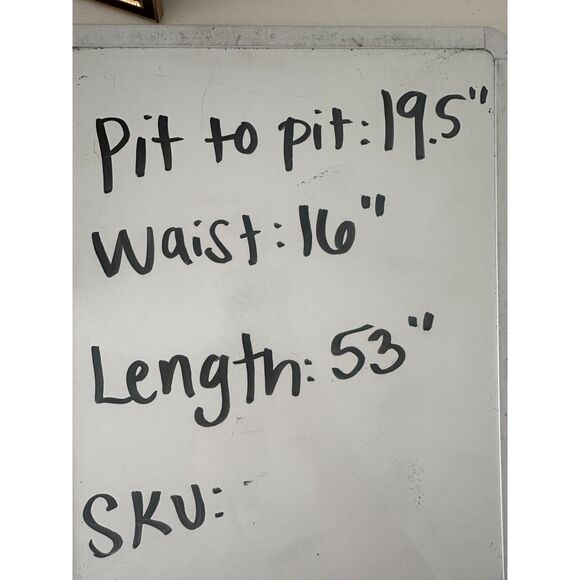 Pit to pit: 19.5"
Waist: 16"
Length: 53"
SKU: